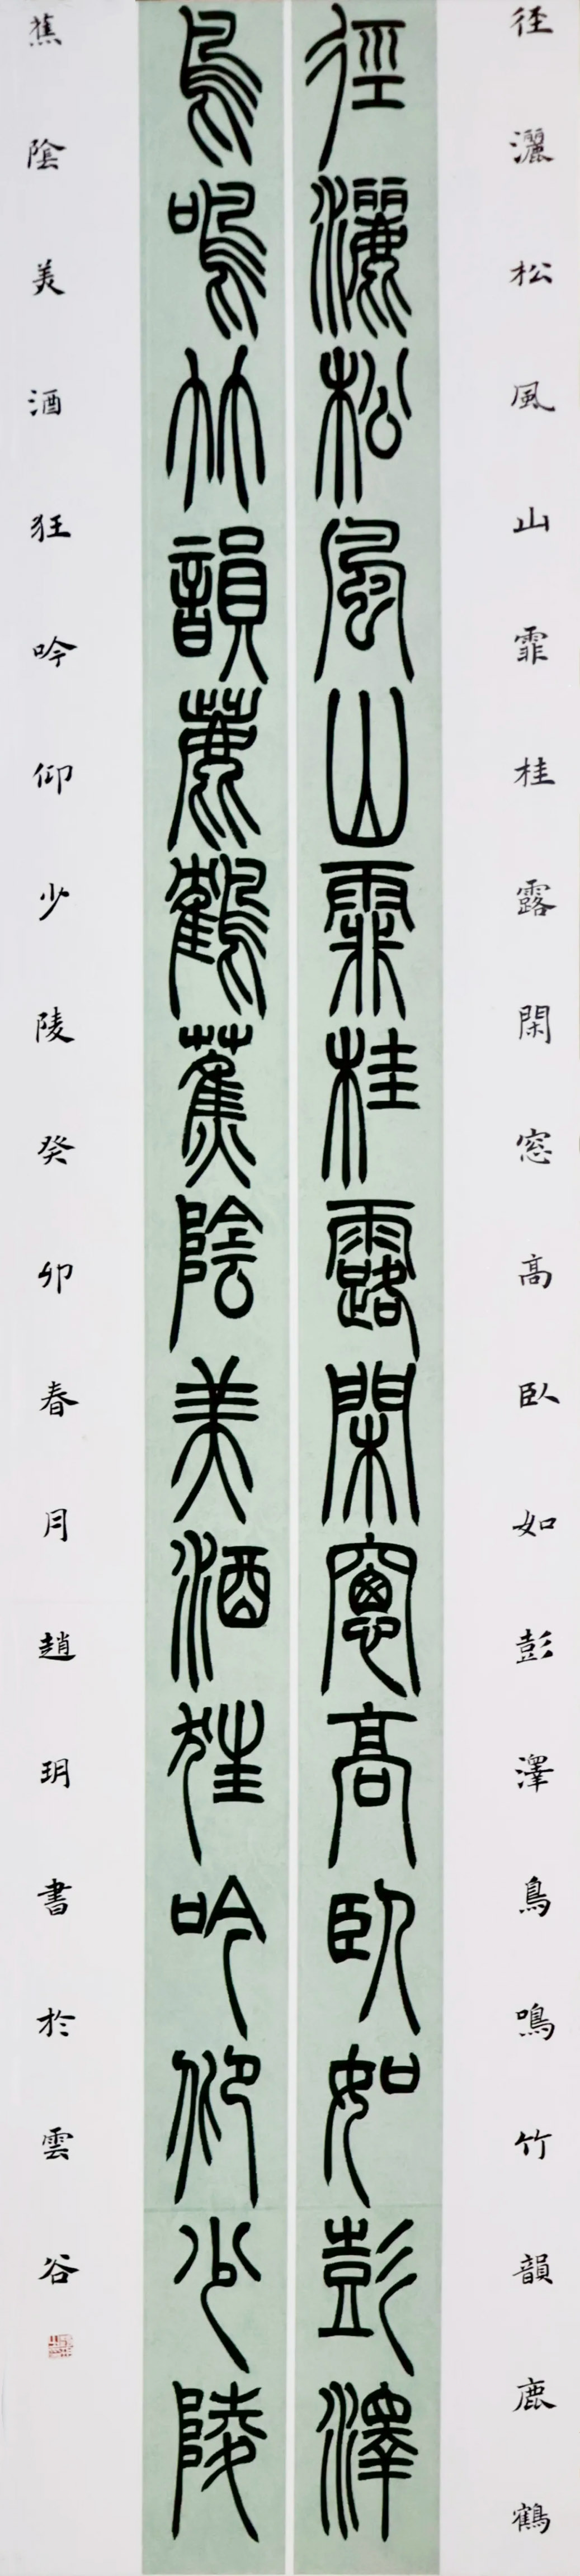 径灑松風山霏桂露閑窓高臥如彭澤鳥鳴竹韻鹿鶴
徑灑松風山霏桂露閑窓高臥如彭澤
鳥鳴竹韻麃鶴蕉陰美酒狂吟仰少陵
蕉陰美酒狂吟仰少陵癸卯春月趙玥書於雲谷